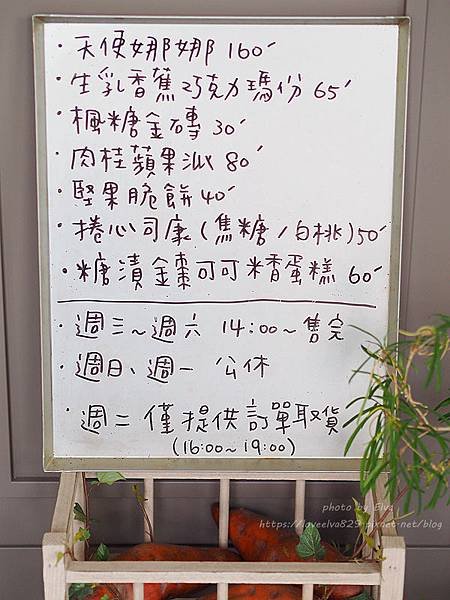 · 天使娜娜 160
· 生乳香蕉巧克力瑪份 65
· 楓糖金磚 30
· 肉桂蘋果派 80
· 堅果脆餅 40
· 捲心司康(焦糖/白桃) 50
· 糖漬金棗可可米香蛋糕 60
· 週三~週六 14:00~售完
· 週日、週一 公休
· 週二僅提供訂單取貨
(16:00~19:00)
photo by Elva
https://loveelva829.pixnet.net/blog